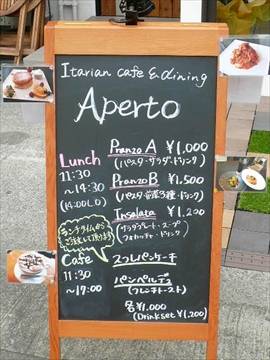 Itarian cafe & dining
Aperto
Lunch
11:30
~14:30
(14:00L.O)
Pranzo A ¥1,000
(パスタ・サラダ・ドリンク)
Pranzo B ¥1,500
(パスタ・前菜3種・ドリンク)
Insalata ¥1,200
(サラダプレート・スープ
フォカッチャ・ドリンク)
ランチタイムから
ご注文して頂けます
Cafe
11:30
~17:00
スフレパンケーキ
パンペルデュ
(フレンチトースト)
各¥1,000
(Drinkset ¥1,200)